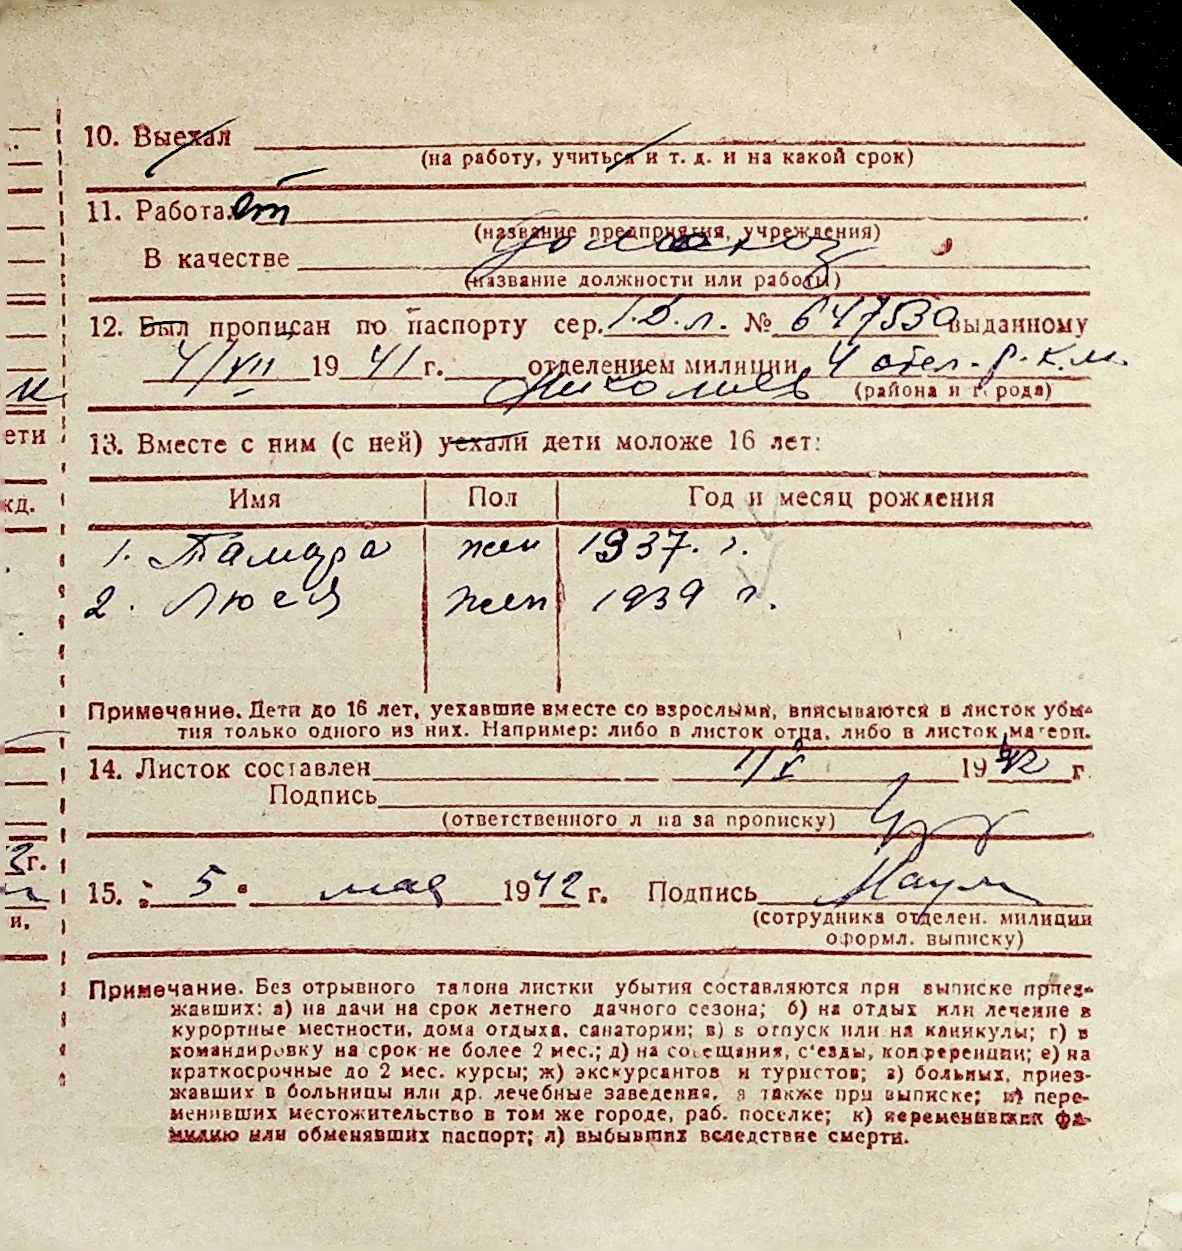 10. Выехал
(на работу, учиться и т. д. и на какой срок)
11. Работа ет
(название предприятия, учреждения)
В качестве домохоз
(название должности или работы)
12. Был прописан по паспорту сер. № 647530 выданному
4/VII 1941 г. отделением милиции 4 отел. р.к.м.
(района и города)
13. Вместе с ним (с ней) уехали дети моложе 16 лет:
Имя Пол Год и месяц рождения
1. Тамара жен 1937. г.
2. Люся жен 1939 г.
Примечание. Дети до 16 лет, уехавшие вместе со взрослыми, вписываются в листок убы-
тия только одного из них. Например: либо в листок отца, либо в листок матери.
14. Листок составлен 1942 г
Подпись
(ответственного л ца за прописку)
15. 5 мая 1942 г. Подпись Наум
(сотрудника отделен. милиции
оформл. выписку)
Примечание. Без отрывного талона листки убытия составляются при выписке приез-
жавших: а) на дачи на срок летнего дачного сезона; б) на отдых или лечение в
курортные местности, дома отдыха, санатории; в) в отпуск или на каникулы; г) в
командировку на срок не более 2 мес.; д) на совещания, с'езды, конференции; е) на
краткосрочные до 2 мес. курсы; ж) экскурсантов и туристов; з) больных, приез-
жавших в больницы или др. лечебные заведения, а также при выписке; и) пере-
менивших местожительство в том же городе, раб. поселке; к) переменивших фа-
милию или обменявших паспорт; л) выбывших вследствие смерти.